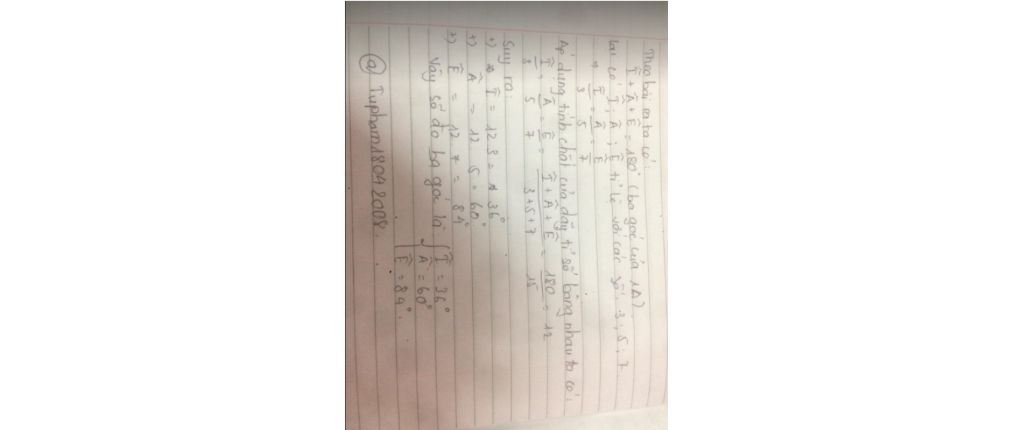 Theo bài ra ta có:
T̂ + Â + Ê = 180° (ba góc của 1Δ)
lại có T̂ ; Â ; Ê tỉ lệ với các số 3 ; 5 ; 7
⇒ T̂/3 = Â/5 = Ê/7
Áp dụng tính chất của dãy tỉ số bằng nhau ta có:
T̂/3 = Â/5 = Ê/7 = (T̂ + Â + Ê)/(3+5+7) = 180/15 = 12
Suy ra:
+) T̂ = 12.3 = 36°
+) Â = 12.5 = 60°
+) Ê = 12.7 = 84°
Vậy số đo ba góc là { T̂ = 36°
Â = 60°
Ê = 84°.
@ Tupham18042008.